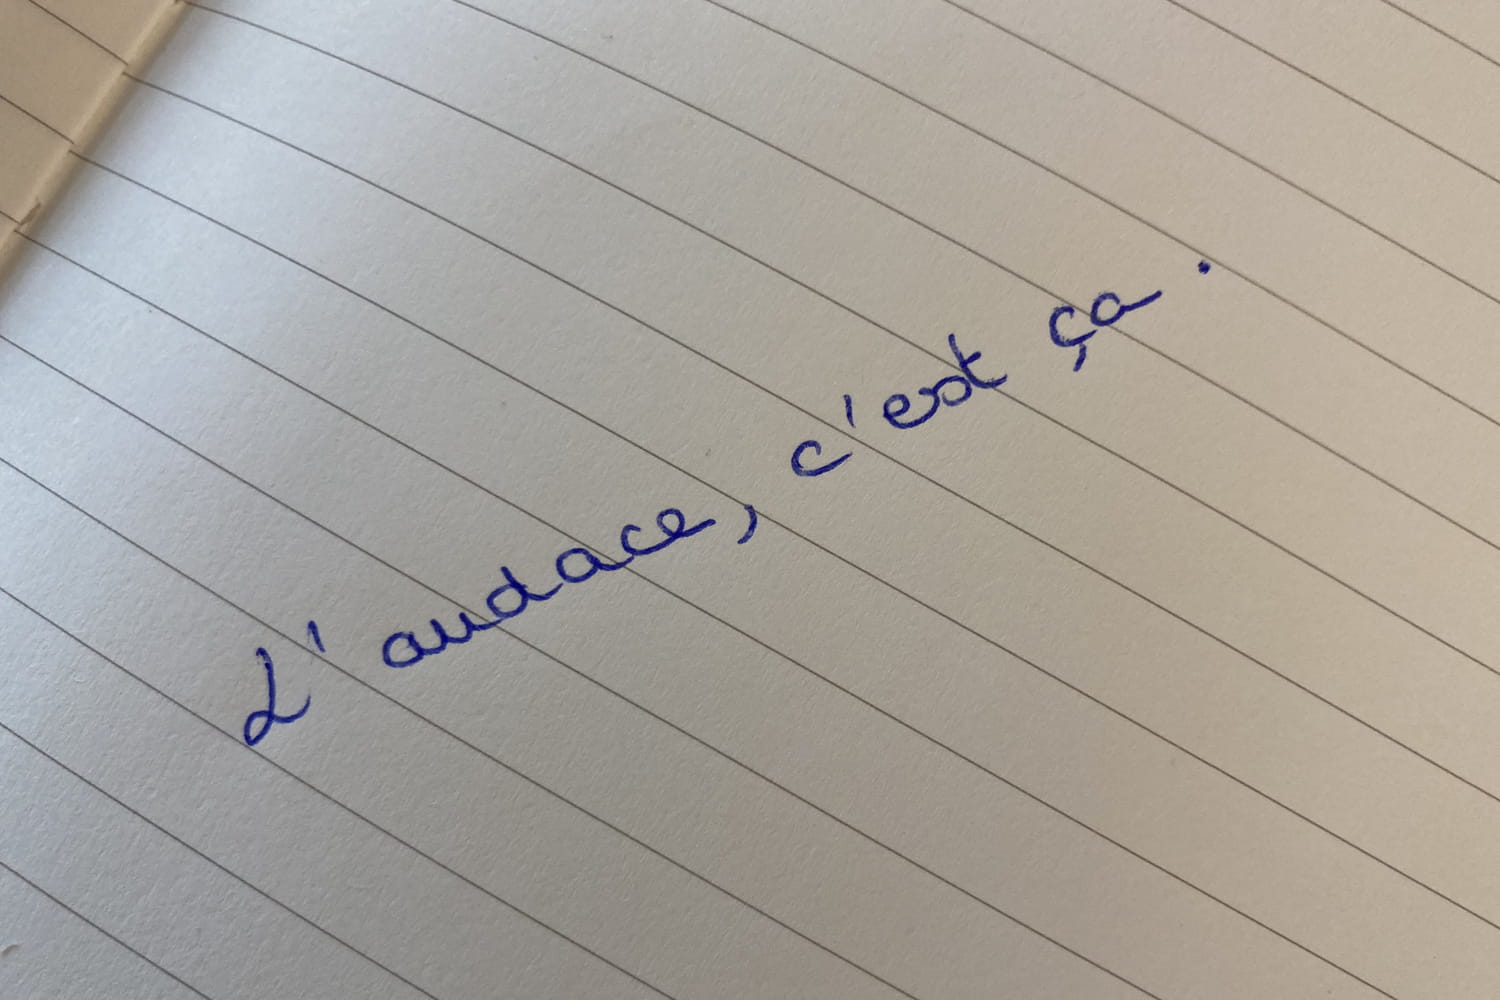 L'audace, c'est ça.